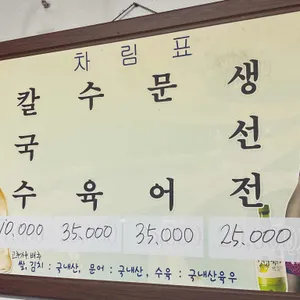 차림표
칼국수 수육 문어 생선전
10,000 35,000 35,000 25,000
쌀,김치 : 국내산, 문어 : 국내산, 수육 : 국내산육우